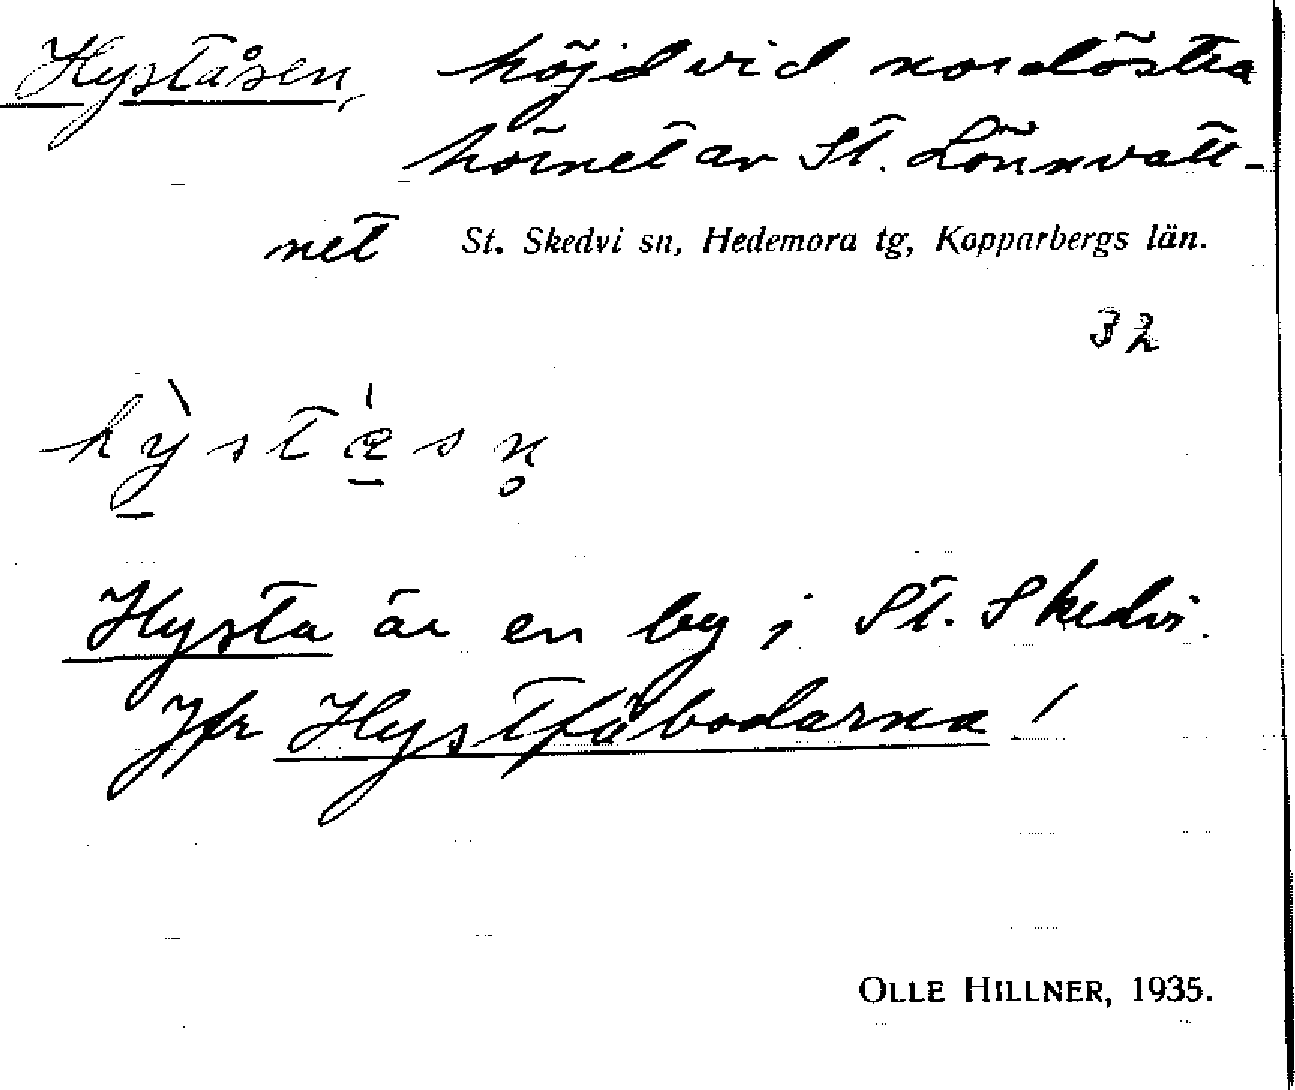 Hyståsen, höjd vid nordöstra
hörnet av St. Lönnvatt-
net St. Skedvi sn, Hedemora tg, Kopparbergs län.
32
Hysta är en by i St. Skedvi.
Jfr Hystfäbodarna!
OLLE HILLNER, 1935.